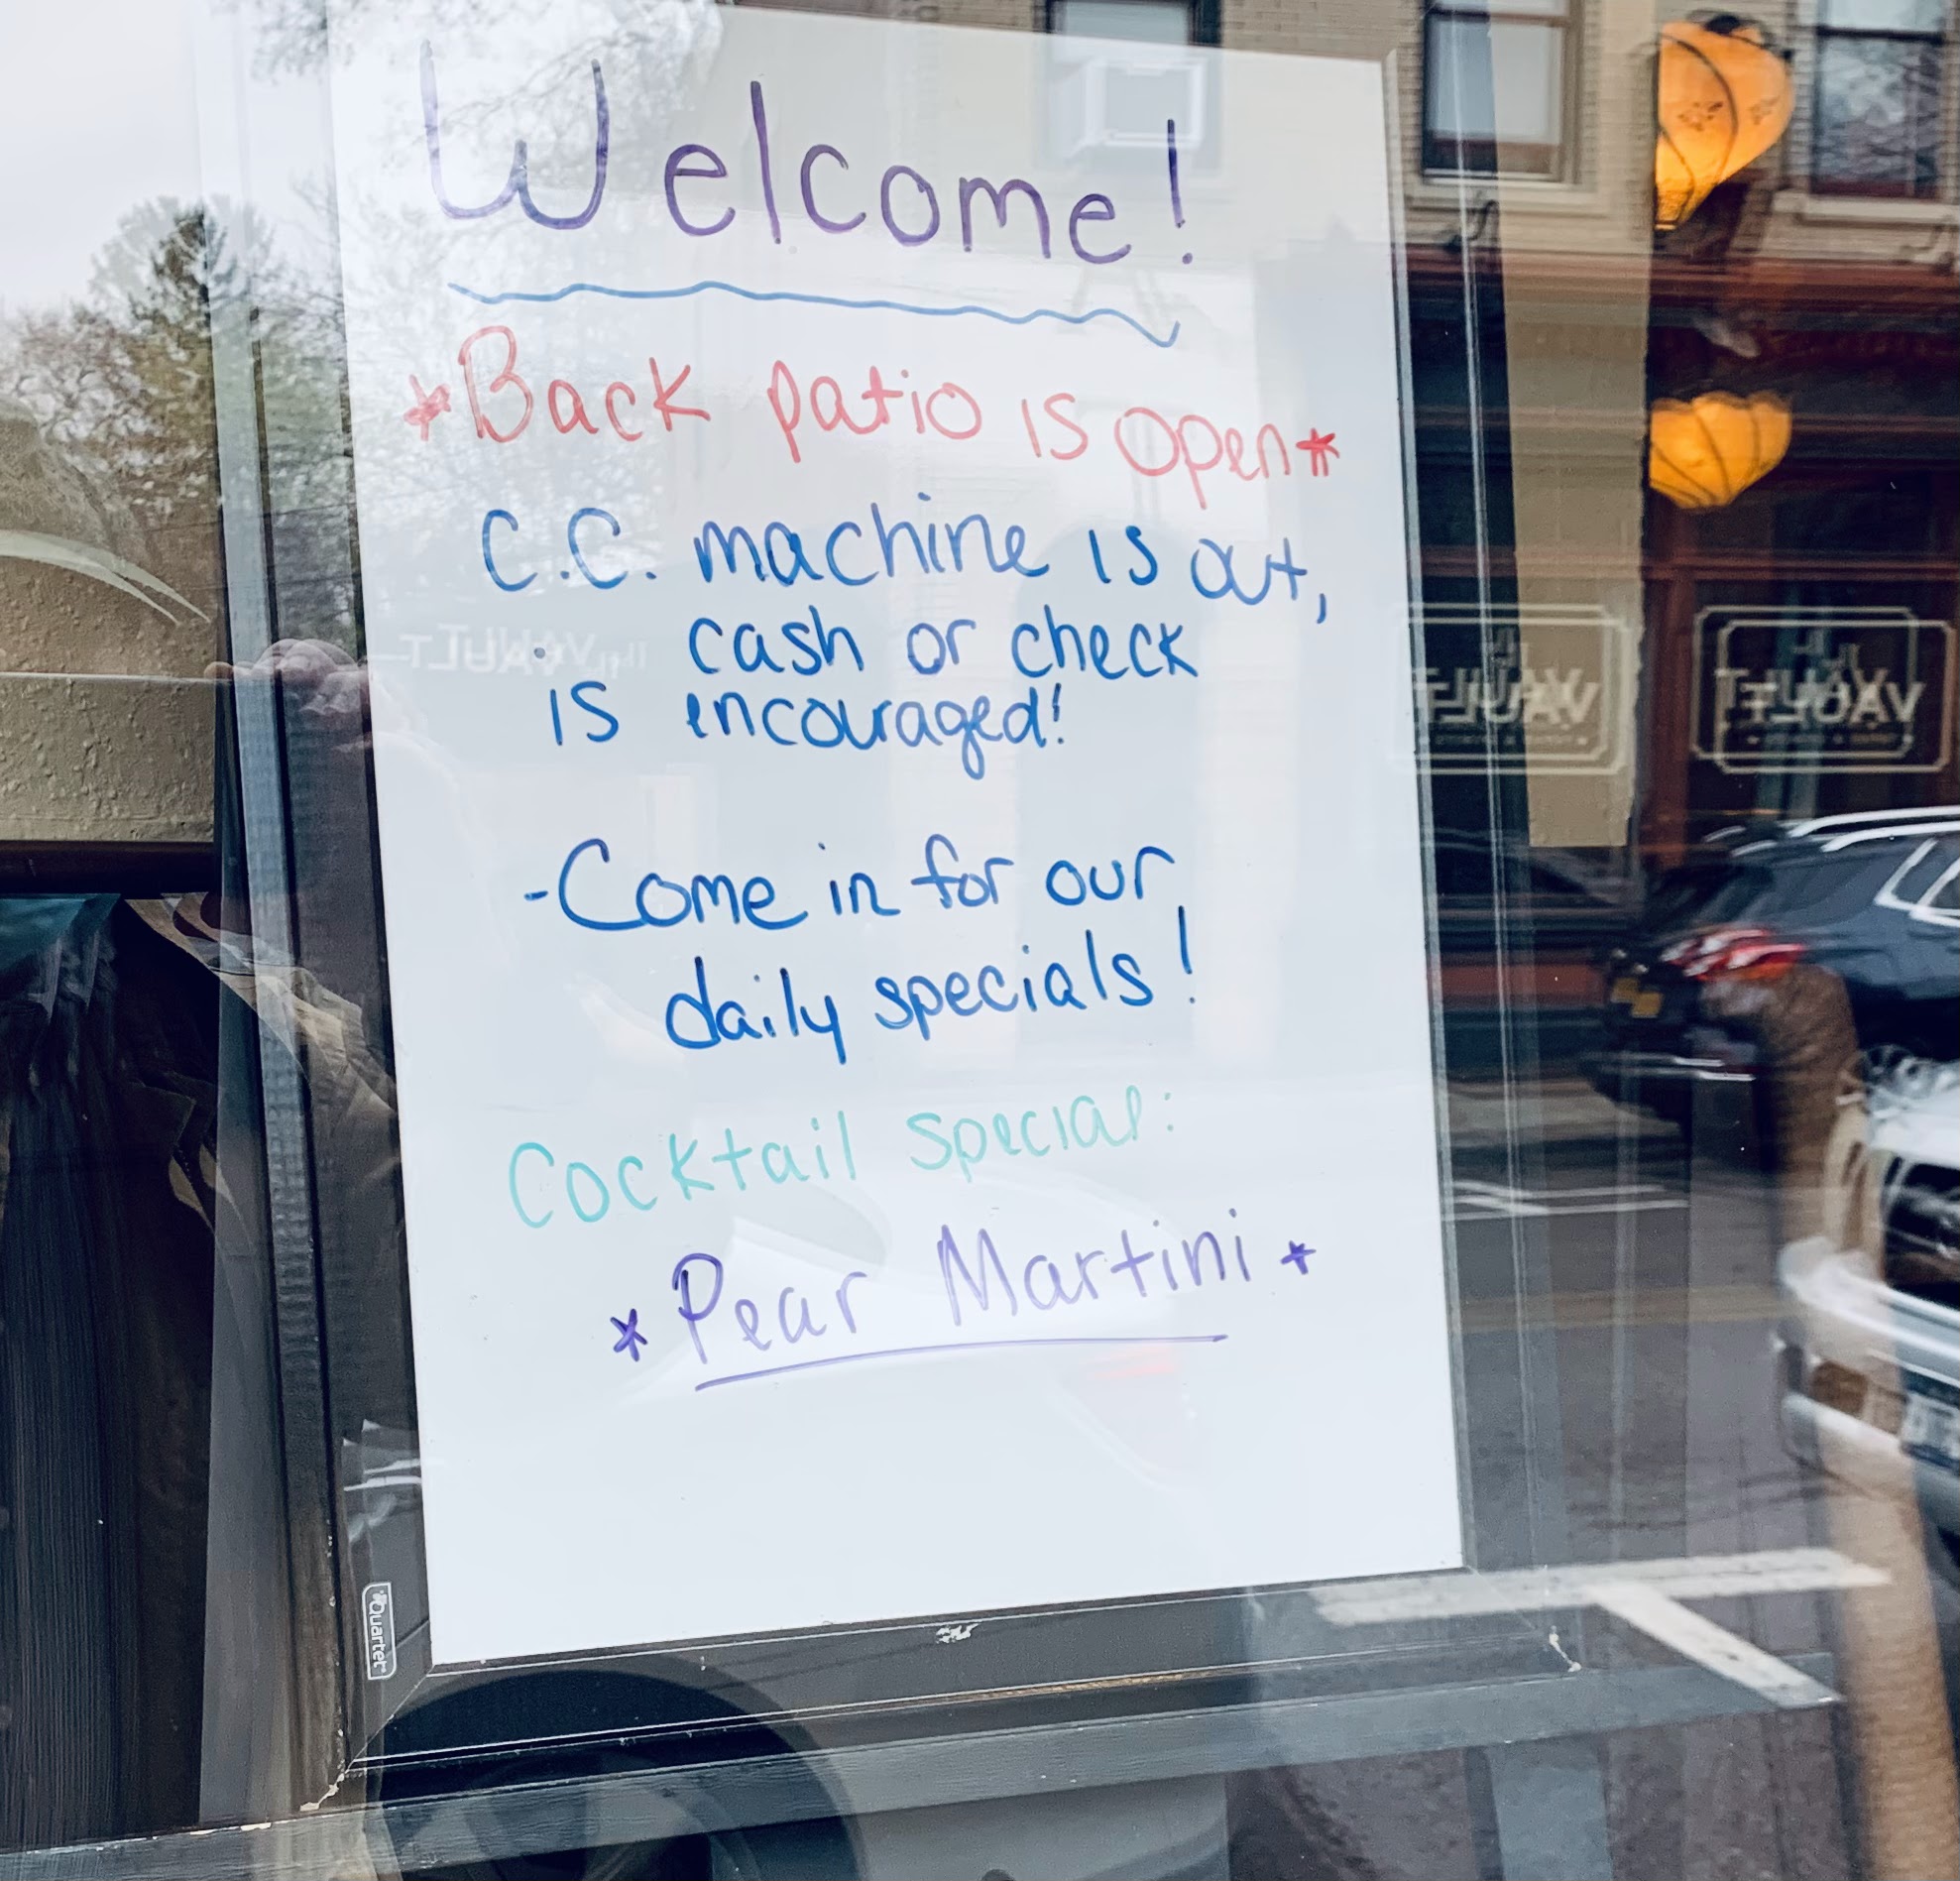 Welcome!
*Back patio is open*
C.C. machine is out,
cash or check
is encouraged!
-Come in for our
daily specials!
Cocktail special:
*Pear Martini*
Quartet
VAULT
VAULT
VAULT